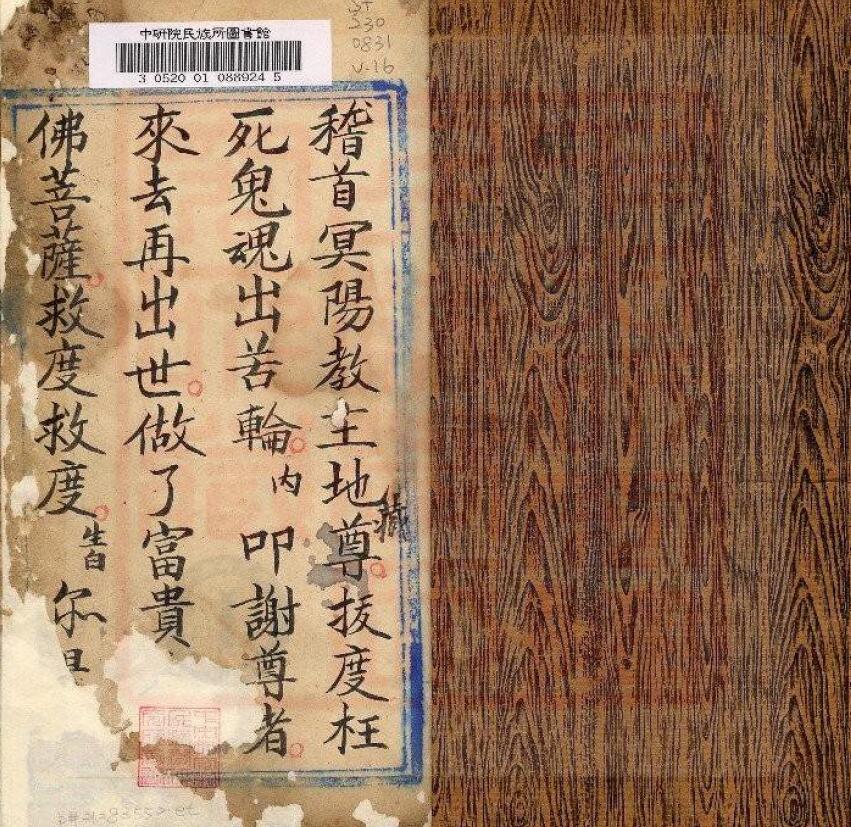 中研院民族所圖書館
3 0520 01 088924 5
ST
530
0831
V-16
稽首冥陽教主地藏尊。拔度枉
死鬼魂出苦輪。內 叩謝尊者。
來去再出世。做了富貴
佛菩薩。救度救度。生白 尔